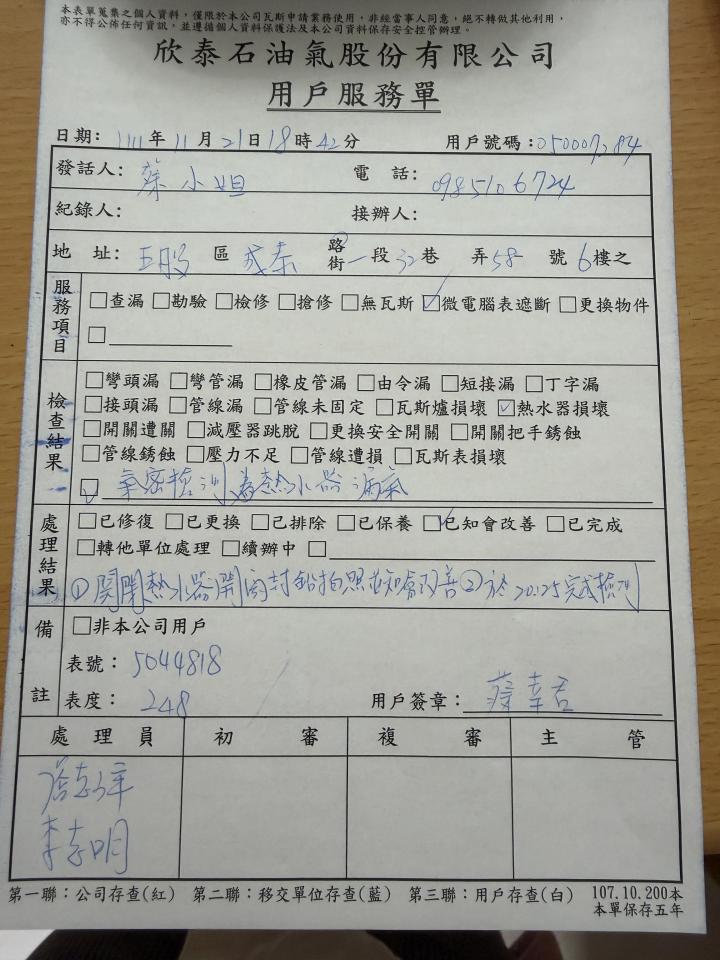 本表單蒐集之個人資料，僅限於本公司瓦斯申請業務使用，非經當事人同意，絕不轉做其他利用，
亦不得公佈任何資訊，並遵循個人資料保護法及本公司資料保存安全控管辦理。
欣泰石油氣股份有限公司
用戶服務單
日期：111年11月21日18時42分 用戶號碼：050007284
發話人：蔡小姐 電話：0985106724
紀錄人： 接辦人：
地址：五股區成泰路街一段32巷 弄58號6樓之
服務項目
□查漏 □勘驗 □檢修 □搶修 □無瓦斯 ☑微電腦表遮斷 □更換物件
□
檢查結果
□彎頭漏 □彎管漏 □橡皮管漏 □由令漏 □短接漏 □丁字漏
□接頭漏 □管線漏 □管線未固定 □瓦斯爐損壞 ☑熱水器損壞
□開關遭關 □減壓器跳脫 □更換安全開關 □開關把手銹蝕
□管線銹蝕 □壓力不足 □管線遭損 □瓦斯表損壞
☑氣密檢測為熱水器漏氣
處理結果
□已修復 □已更換 □已排除 □已保養 ☑已知會改善 □已完成
□轉他單位處理 □續辦中 □
①關閉熱水器開關封鉛拍照並知會改善②於20:25完成檢測
備註
□非本公司用戶
表號：5044818
表度：248 用戶簽章：
處理員 初審 複審 主管
李志明
第一聯：公司存查(紅) 第二聯：移交單位存查(藍) 第三聯：用戶存查(白) 107.10.200本
本單保存五年